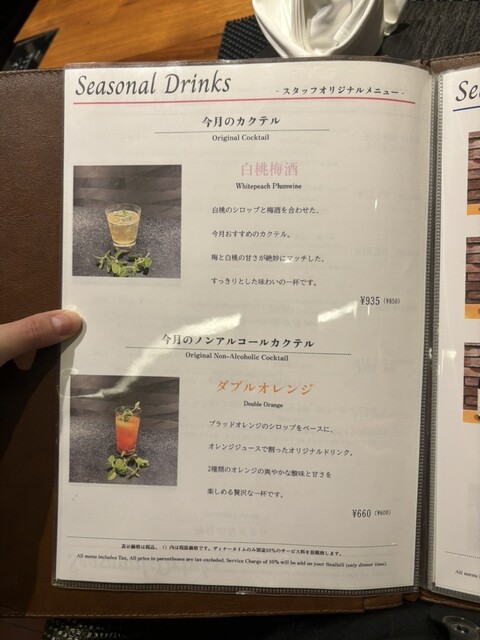 Seasonal Drinks
- スタッフオリジナルメニュー -
今月のカクテル
Original Cocktail
白桃梅酒
Whitepeach Plumwine
白桃のシロップと梅酒を合わせた、
今月おすすめのカクテル。
梅と白桃の甘さが絶妙にマッチした、
すっきりとした味わいの一杯です。
¥935 (¥850)
今月のノンアルコールカクテル
Original Non-Alcoholic Cocktail
ダブルオレンジ
Double Orange
ブラッドオレンジのシロップをベースに、
オレンジジュースで割ったオリジナルドリンク。
2種類のオレンジの爽やかな酸味と甘さを
楽しめる贅沢な一杯です。
¥660 (¥600)
表示価格は税込、（）内は税抜価格です。ディナータイムのみ別途10%のサービス料を頂戴致します。
All menu includes Tax, All price in parentheses are tax excluded. Service Charge of 10% will be add on your
Se
All menu